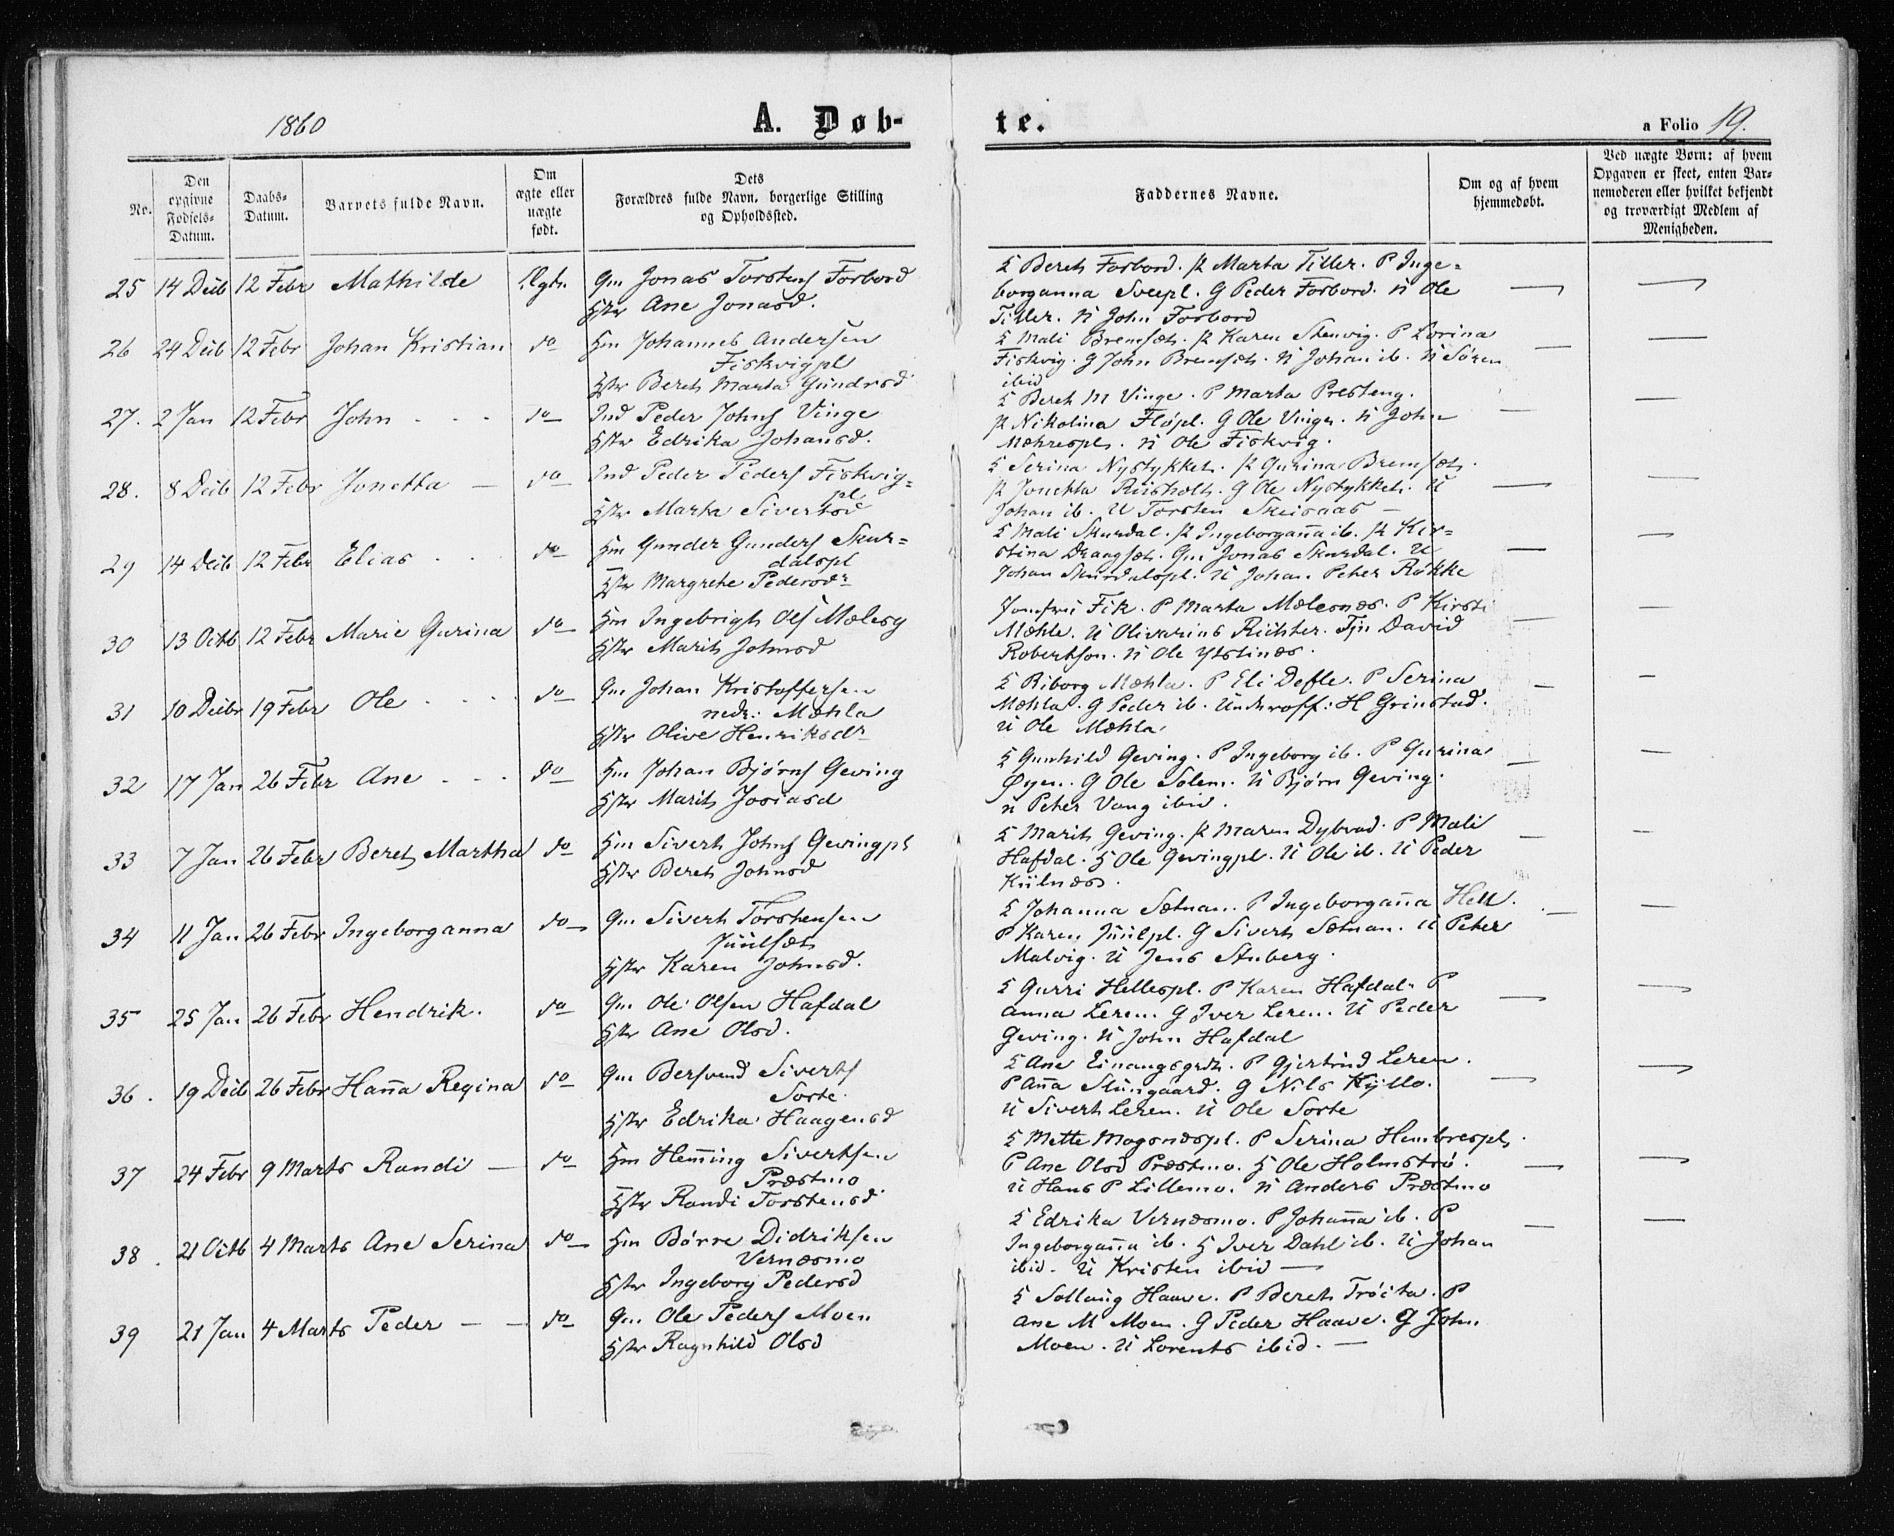 1860
A. Døb-
te.
a Folio 19.
No.
Den
opgivne
Fødsels-
Datum.
Daabs-
Datum.
Barnets fulde Navn.
Om
ægte eller
uægte
født.
Dets
Forældres fulde Navn, borgerlige Stilling
og Opholdssted.
Faddernes Navne.
Om og af hvem
hjemmedøbt.
Ved uægte Børn: af hvem
Opgaven er skeet, enten Bar-
nemoderen eller hvilket bekjendt
og troværdigt Medlem af
Menigheden.
25 14 Decb 12 Febr Mathilde Ægte. Gm Jonas Torstens Forbord
Hstr Ane Jonasd.
K Bereth Forbord. P Marta Tiller. P Inge=
borganna Sveepl. G Peder Forbord. U Ole
Tiller. U John Forbord
26 24 Decb 12 Febr Johan Kristian do Hm Johannes Andersen
Fiskvigpl
Hstr Bereth Marta Gundersd
K Mali Bremsæth. P Karen Stenvig. P Lorina
Fiskvig. G John Bremsæth. U Johan ib. U Sören
ibid
27. 2 Jan 12 Febr John - - - do Ind Peder Johns Vinge
Hstr Edrika Johansd.
K Bereth M Vinge. P Marta Presteng.
P Nikolina Fløpl. G Ole Vinge. U John
Mæhrespl. U Ole Fiskvig.
28. 8 Decb 12 Febr Jonetta - do Ind Peder Peders Fiskvig=
pl
Hstr Marta Sivertsd
K Serina Nystykket. P Gurina Bremsæth.
P Jonetta Riisholt. G Ole Nystykket. U
Johan ib. U Torsten Skeisaas -
29 14 Decb 12 Febr Elias - - do Hm Gunder Gunders Skur=
dalspl
Hstr Margrethe Pedersdr
K Mali Skurdal. P Ingeborgana ib. P Kir=
stina Draagsæt. Gm Jonas Skurdal. U
Johan Skurdalspl. U Johan Peter Røkke
30 13 Octb 12 Febr Marie Gurina do Hm Ingebrigt Ols Mælesg
Hstr Marith Johnsd
Jomfru Fik. P Marta Mælesnæs. P Kirsti
Mæhle. U Olivarius Richter. Tjn David
Robertson. U Ole Ytstinæs.
31 10 Decbr 19 Febr Ole - - - do Gm Johan Kristoffersen
nedr: Mæhla
Hstr Olive Henriksdr
K Riborg Mæhla. P Eli Defle. P Serina
Mæhla. G Peder ib. Underoff: H Grinstad.
U Ole Mæhla
32 17 Jan 26 Febr Ane - - - do Hm Johan Bjørns Geving
Hstr Marith Josiasd
K Gunhild Geving. P Ingeborg ib. P Gurina
Øyen. G Ole Solem. U Bjørn Geving.
U Peter Vang ibid.
33 7 Jan 26 Febr Bereth Martha do Hm Siverth Johns Gevingpl
Hstr Bereth Johnsd
K Marith Geving. P Maren Dybvad. P Mali
Hafdal. H Ole Gevingpl. U Ole ib. U Peder
Kiilnæs.
34 11 Jan 26 Febr Ingeborganna do Gm Siverth Torstensen
Juulsæth
Hstr Karen Johnsd.
K Johanna Sætnan. P Ingeborgana Hell.
P Karen Juulpl. G Siverth Sætnan. U Peter
Malvig. U Jens Stuberg.
35 25 Jan 26 Febr Hendrik. do Gm Ole Olsen Hafdal
Hstr Ane Olsd.
K Gurri Hellespl. P Karen Hafdal. P
Anna Leren. G Iver Leren. U Peder
Geving. U John Hafdal
36. 19 Decb 26 Febr Hana Regina do Gm Bersvend Siverts
Sorte.
Hstr Edrika Haagensd
K Ane Einangsgrdr. P Gjertrud Leren.
P Ana Stuugaard. G Nils Kyllo.
U Siverth Leren. U Ole Sorte
37 24 Febr 9 Marts Randi - do Hm Heming Sivertsen
Præstmo
Hstr Randi Torstensd
K Mette Mogsnæspl. P Serina Hembrespl.
P Ane Olsd Præstmo. H Ole Holmstrø.
U Hans P Lillemo. U Anders Præstmo
38. 21 Octb 4 Marts Ane Serina do Hm Børre Didriksen
Vernæsmo
Hstr Ingeborg Pedersd
K Edrika Vernæsmo. P Johana ib. P
Ingeborgana ib. H Iver Dahl ib. U Johan
ibid. U Kristen ibid -
39 21 Jan 4 Marts Peder - - do Gm Ole Peders Moen
Hstr Ragnhild Olsd
K Sollaug Haave. P Bereth Trøite. P
Ane M Moen. G Peder Haave. G John
Moen. U Lorents ibid. -